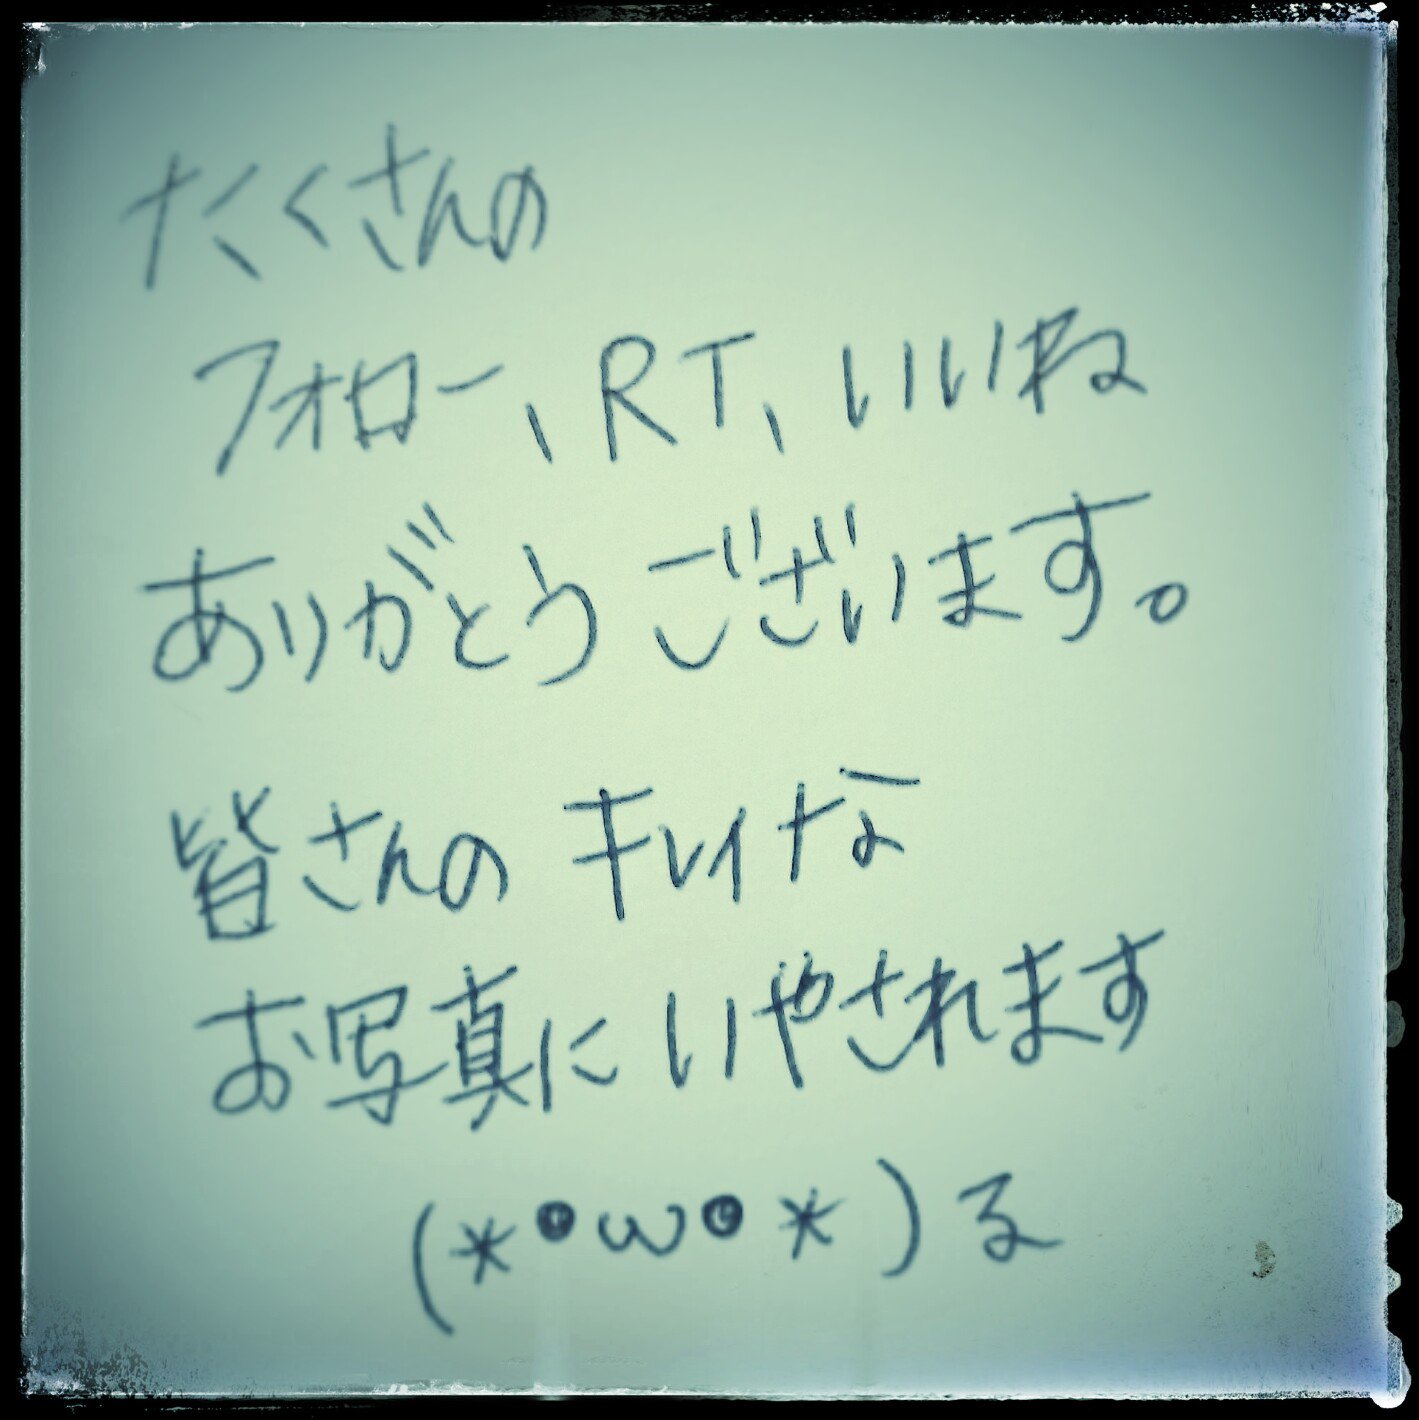 たくさんの
フォロー、RT、いいね
ありがとうございます。
皆さんのキレイな
お写真にいやされます
(*•ω•*)る